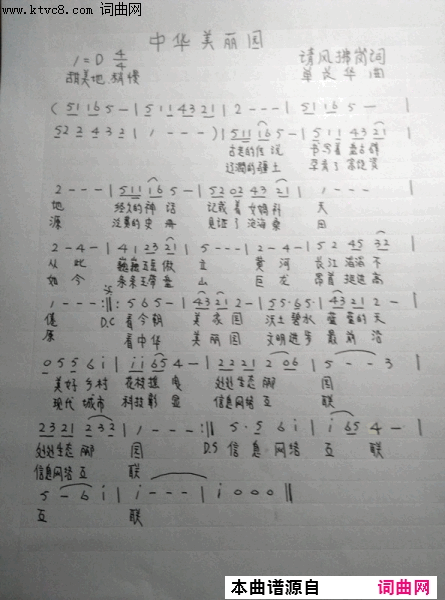 www.ktvc8.com 词曲网
中华美丽园
1=D 4/4 清风拂岗词
甜美地 稍慢 单长华 曲
(5 1 1 6 5 - | 5 1 1 4 3 2 1 | 2 - - - | 5 1 1 6 5 - |
5 2 2 4 2 3 | 1 - - - ) | 5 1 1 6 5 - | 5 1 1 4 3 2 1 |
古老的传说 书写着
辽阔的疆土
2 - - - | 5 1 1 i 6 5 - | 5 2 0 2 4 3 2 1 | 1 - - - |
地 悠久的神话 记载着女娲补天
源 泛黄的史册 见证了沧海桑田
2 - 4 - | 4 1 2 3 2 1 | 5 - - - | 2 - 4 - | 5 2 4 5 3 2 |
从此 巍巍五岳傲立 黄河长江滔滔不
如今 山 巨龙昂首挺进高
1 - - - :| 5 6 5 - | 4 3 2 1 2 - | 5 5 · 6 5 · | 4 3 2 1 2 - |
倦 D.C 看今朝 美家园 沃土碧水 蓝蓝的天
原 看中华 美丽园 文明进步 最前沿
0 5 5 6 i | i i 6 5 4 - | 2 2 2 1 2 0 | 5 - - 3 |
美好乡村 处处生态
现代城市 科技彰显 信息网络互联
2 3 2 1 2 3 2 | 1 - - - :|| 5 · 5 6 i | i 6 5 4 - |
处处生态 园 D.S 信息·网络互联
信息网络互联
5 - 6 i | i - - - | i 0 0 0 ||
互联
本曲谱源自 词曲网